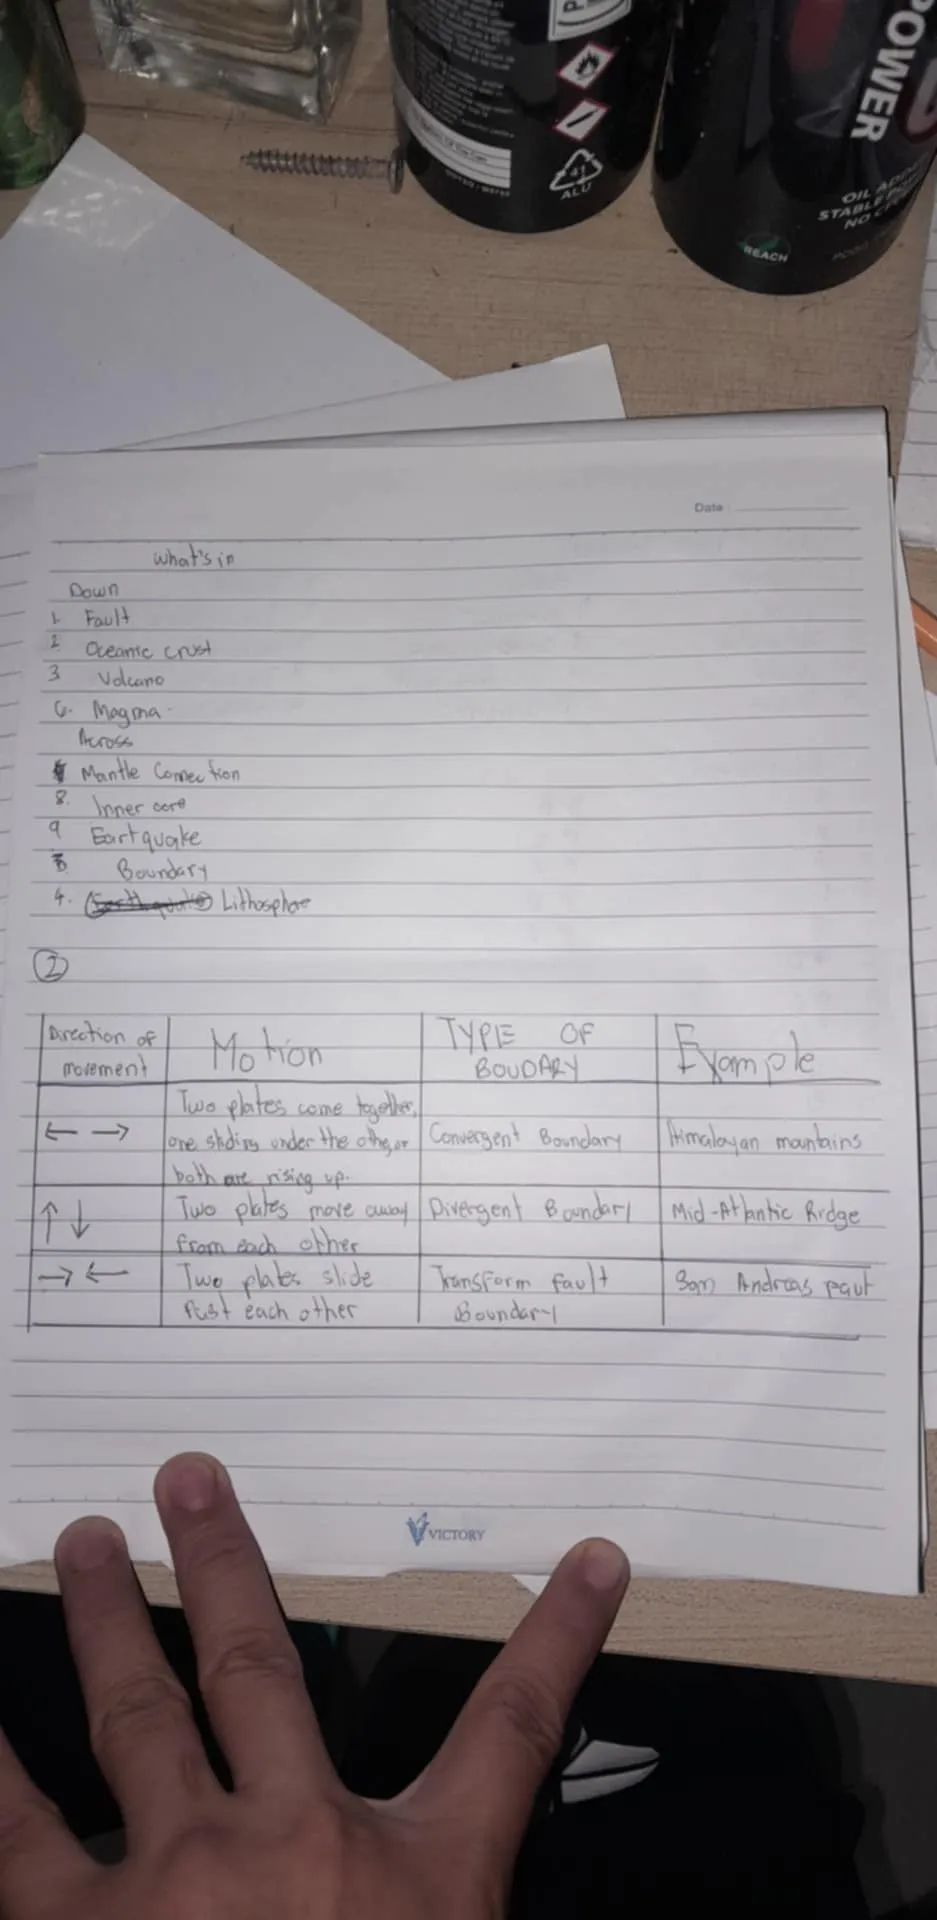 POWER
41
ALU
OIL
STABLE
NO
REACH
Date
What's in
Down
1. Fault
2 Oceanic crust
3 Volcano
6. Magma
Across
Mantle Connection
8. Inner core
9 Eartquake
Boundary
4. Lithosphere
2
Direction of movement
Motion
TYPE OF BOUDARY
Example
← →
Two plates come together,
one sliding under the other, or
both are rising up.
Convergent Boundary
Himalayan mountains
↑ ↓
Two plates move away
from each other
Divergent Boundary
Mid-Atlantic Ridge
→ ←
Two plates slide
Past each other
Transform fault
Boundary
San Andreas
VICTORY